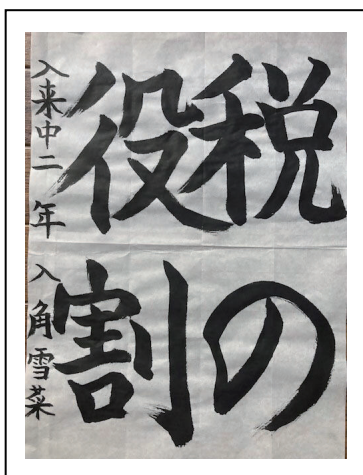 税の
役割
入来中二年 入角雪菜